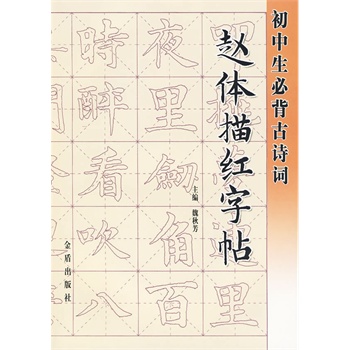 初中生必背古诗词
赵体描红字帖
主编 魏秋芳
金盾出版社
夜里劍角百
時醉看吹八